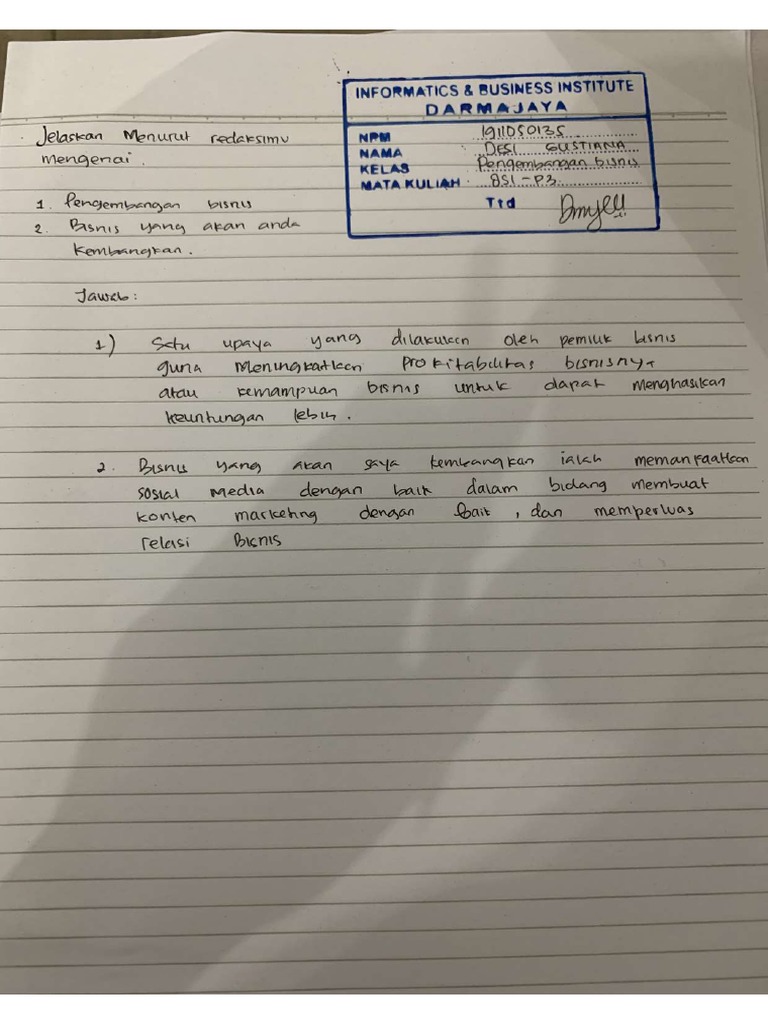 INFORMATICS & BUSINESS INSTITUTE
DARMAJAYA
NPM 1911050135
NAMA DESI GUSTIANA
KELAS Pengembangan bisnis
MATA KULIAH BSI-P3
Ttd
Jelaskan Menurut redaksimu
mengenai.
1. Pengembangan bisnis
2. Bisnis yang akan anda
kembangkan.
Jawab:
1) Satu upaya yang dilakukan oleh pemilik bisnis
guna meningkatkan profitabilitas bisnisnya
atau kemampuan bisnis untuk dapat menghasilkan
keuntungan lebih.
2. Bisnis yang akan saya kembangkan ialah memanfaatkan
sosial media dengan baik dalam bidang membuat
konten marketing dengan baik, dan memperluas
relasi Bisnis